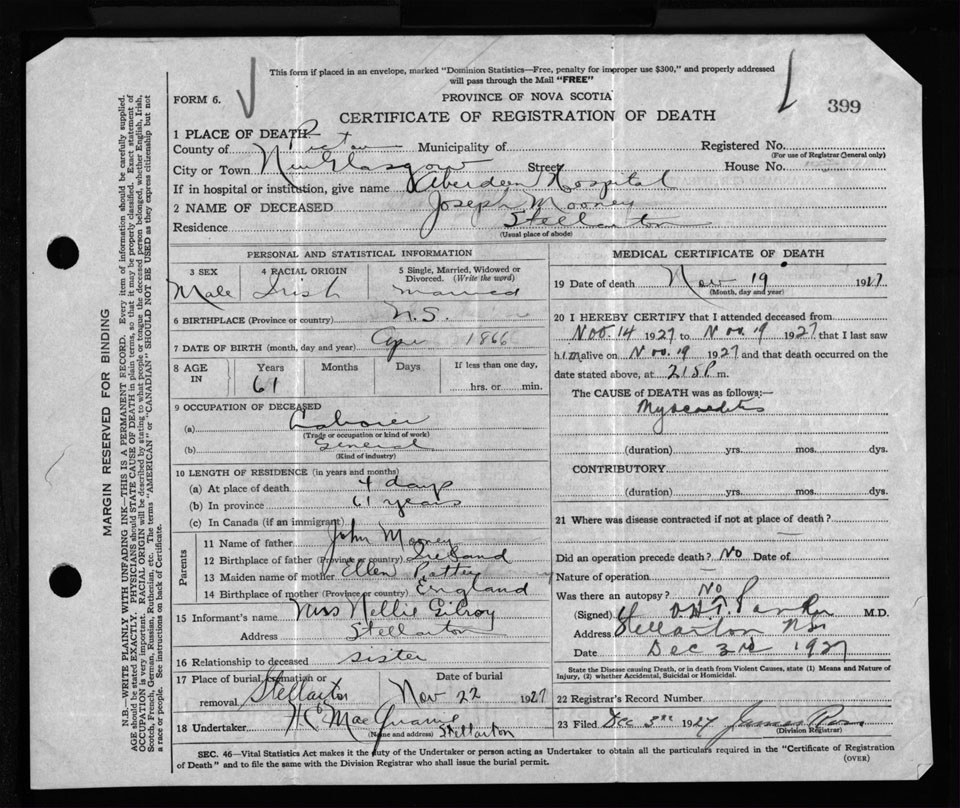 This form if placed in an envelope, marked "Dominion Statistics—Free, penalty for improper use $300," and properly addressed
will pass through the Mail "FREE"
FORM 6.
PROVINCE OF NOVA SCOTIA
399
CERTIFICATE OF REGISTRATION OF DEATH
1 PLACE OF DEATH—
County of Pictou Municipality of Registered No.
(For use of Registrar General only)
City or Town New Glasgow Street House No.
If in hospital or institution, give name Aberdeen Hospital
2 NAME OF DECEASED Joseph Mooney
Residence Stellarton
(Usual place of abode)
PERSONAL AND STATISTICAL INFORMATION
3 SEX 4 RACIAL ORIGIN 5 Single, Married, Widowed or Divorced. (Write the word)
Male Irish Married
6 BIRTHPLACE (Province or country) N.S.
7 DATE OF BIRTH (month, day and year) 1866
8 AGE IN Years Months Days If less than one day,
61 hrs. or min.
9 OCCUPATION OF DECEASED
(a) Laborer
(Trade or occupation or kind of work)
(b) General
(Kind of industry)
10 LENGTH OF RESIDENCE (in years and months)
(a) At place of death 4 days
(b) In province 61 years
(c) In Canada (if an immigrant)
Parents
11 Name of father John Mooney
12 Birthplace of father (Province or country) Ireland
13 Maiden name of mother Ellen
14 Birthplace of mother (Province or country) England
15 Informant's name Mrs Nellie Gilroy
Address Stellarton
16 Relationship to deceased sister
17 Place of burial, cremation or removal Stellarton
Date of burial
Nov 22 1927
18 Undertaker
(Name and address) Stellarton
MEDICAL CERTIFICATE OF DEATH
19 Date of death Nov 19 1927
(Month, day and year)
20 I HEREBY CERTIFY that I attended deceased from
Nov. 14 1927 to Nov. 19 1927 that I last saw
him alive on Nov. 19 1927 and that death occurred on
date stated above, at 215P m.
The CAUSE of DEATH was as follows:—
Myocarditis
(duration) yrs. mos. dys.
CONTRIBUTORY
(duration) yrs. mos. dys.
21 Where was disease contracted if not at place of death?
Did an operation precede death? No Date of
Nature of operation
Was there an autopsy? No
(Signed) Parker M.D.
Address Stellarton NS
Date Dec 3rd 1927
State the Disease causing Death, or in death from Violent Causes, state (1) Means and Nature of
Injury, (2) whether Accidental, Suicidal or Homicidal.
22 Registrar's Record Number
23 Filed Dec 3rd 1927 James
(Division Registrar)
SEC. 46—Vital Statistics Act makes it the duty of the Undertaker or person acting as Undertaker to obtain all the particulars required in the "Certificate of Registration
of Death" and to file the same with the Division Registrar who shall issue the burial permit.
(OVER)
MARGIN RESERVED FOR BINDING
N.B.—WRITE PLAINLY WITH UNFADING INK—THIS IS A PERMANENT RECORD. Every item of information should be carefully supplied.
AGE should be stated EXACTLY. PHYSICIANS should STATE CAUSE OF DEATH in plain terms, so that it may be properly classified. Exact statement of
OCCUPATION is very important. RACIAL ORIGIN will be described by stating to what people or tongue the deceased person belonged, whether English, Irish,
Scotch, French, German, Russian, Ruthenian, etc. The terms "AMERICAN" or "CANADIAN" SHOULD NOT BE USED as they express citizenship but not
a race or people. See instructions on back of Certificate.